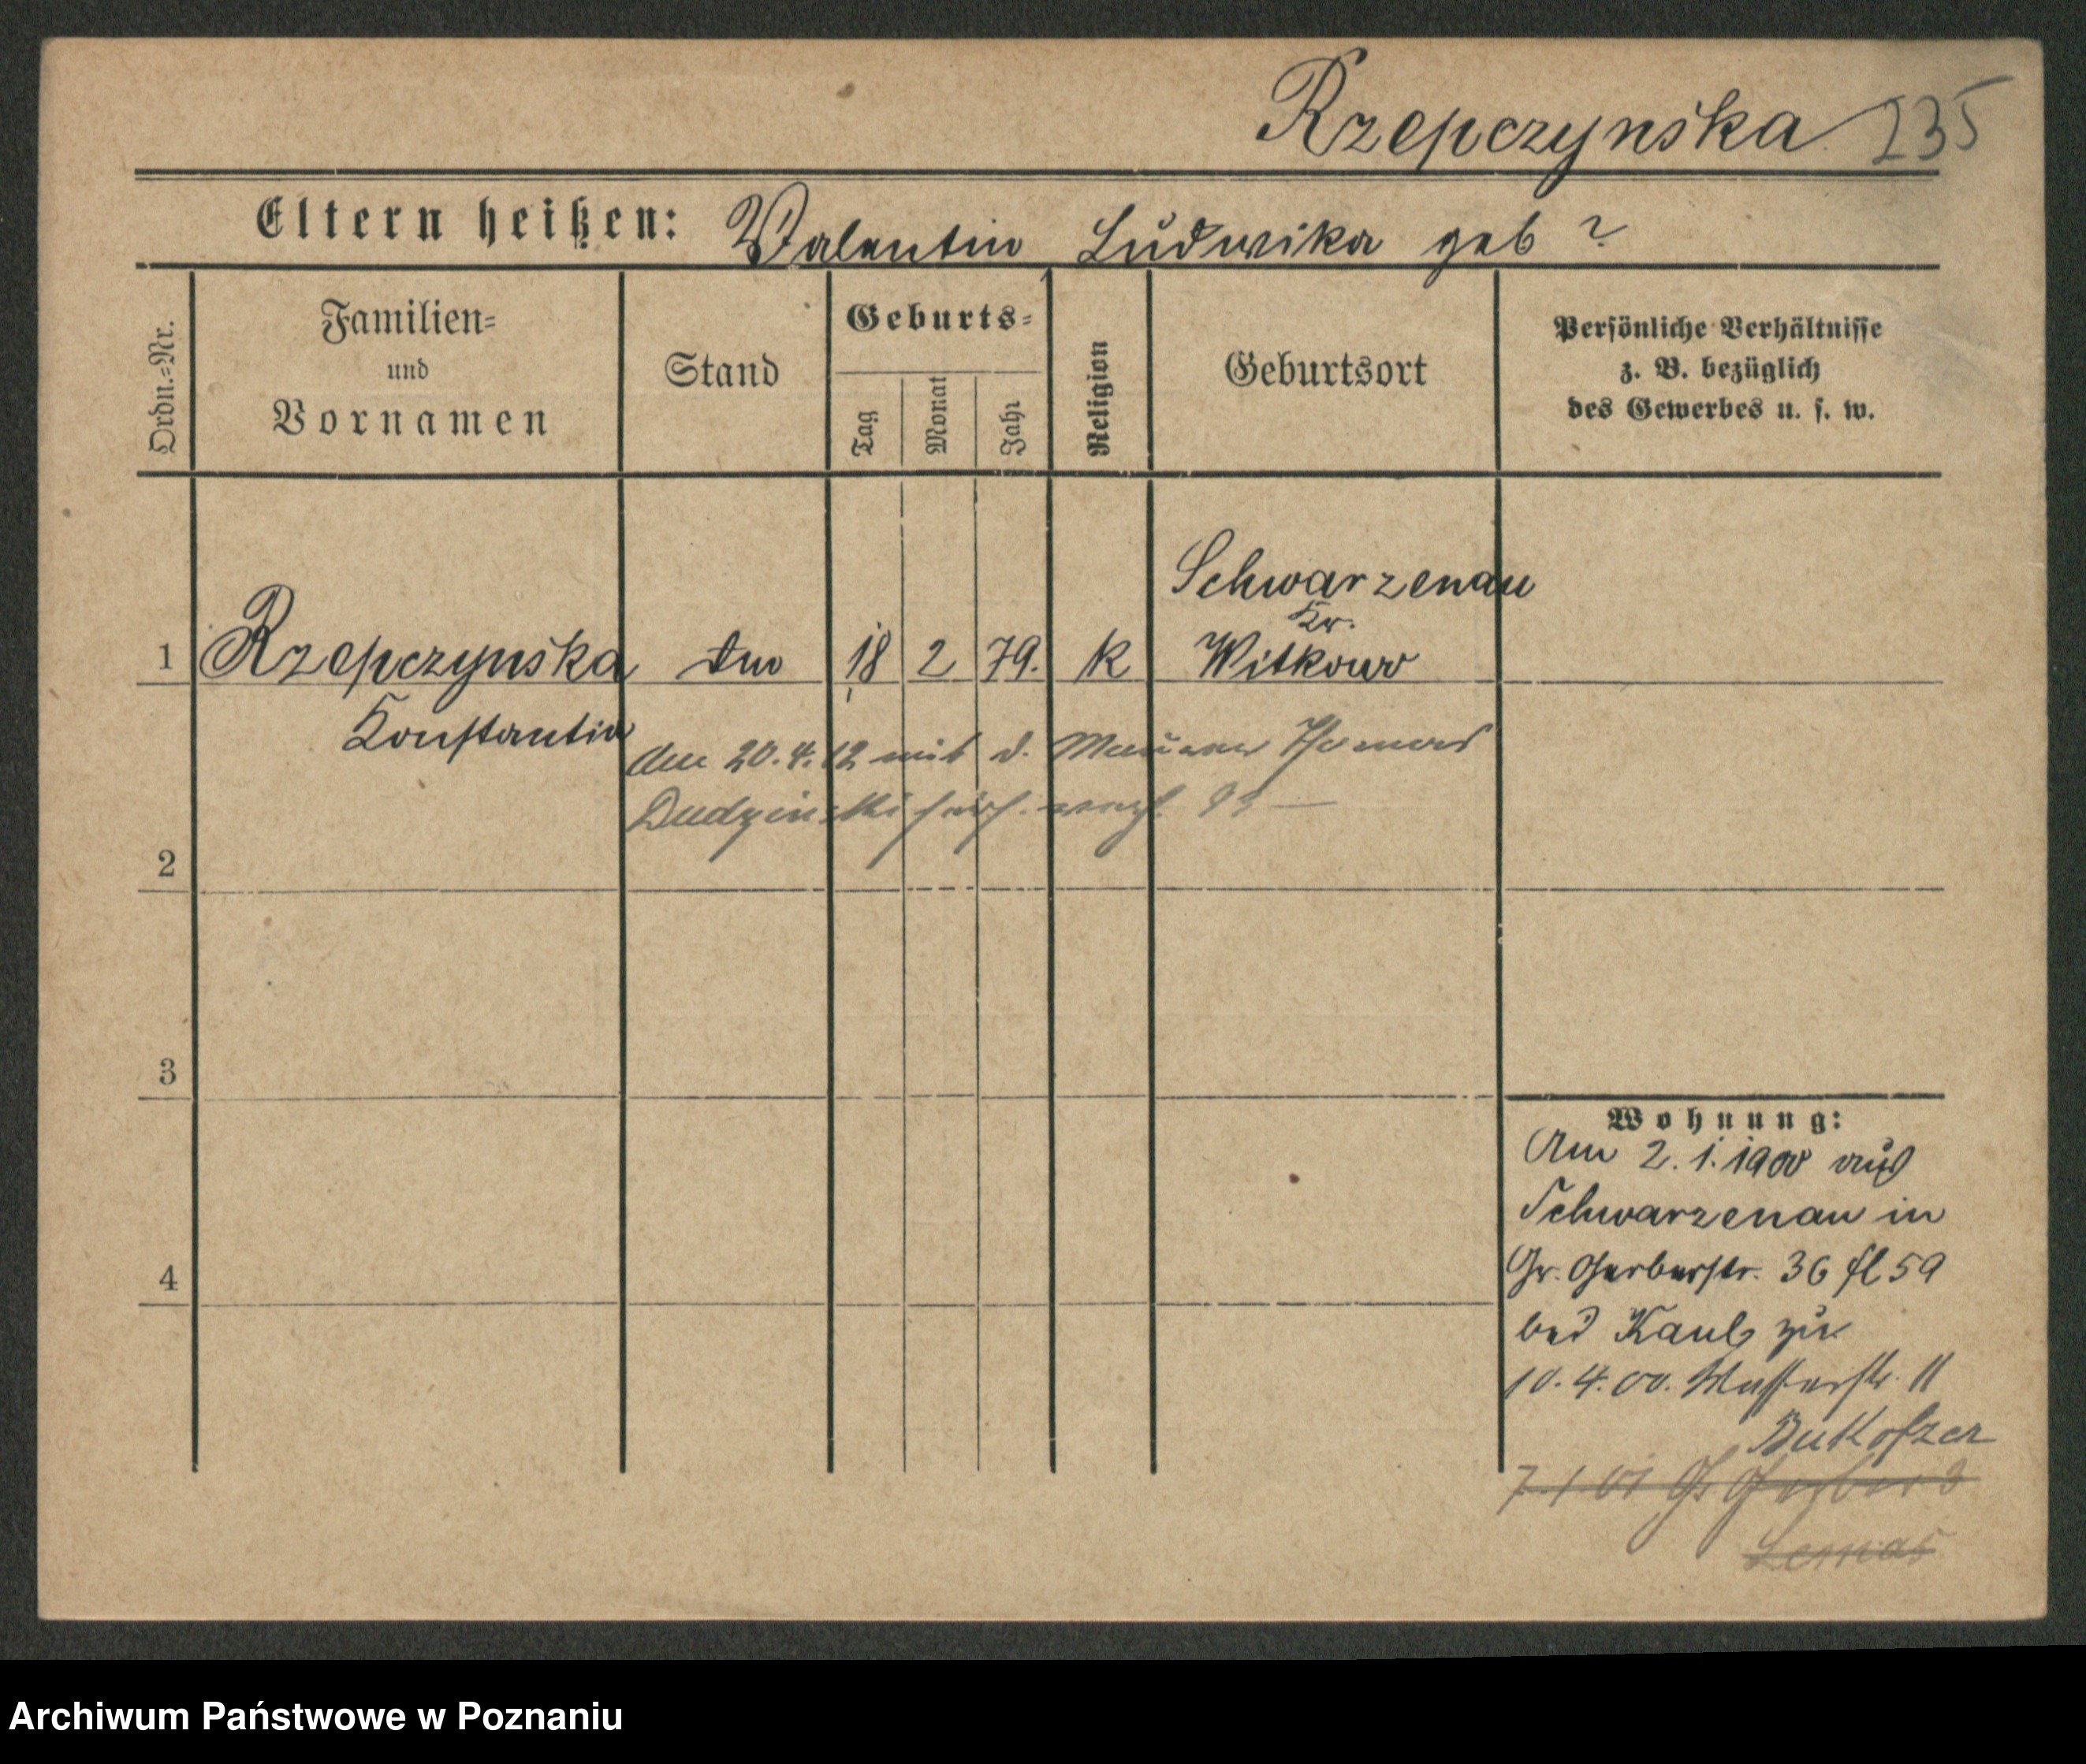 Rzepczynska 235
Eltern heißen: Valentin Ludwika geb ?
Ordn.=Nr.
Familien=
und
Vornamen
Stand
Geburts=
Tag
Monat
Jahr
Religion
Geburtsort
Persönliche Verhältnisse
z. B. bezüglich
des Gewerbes u. s. w.
Schwarzenau
Kr.
1 Rzepczynska 18 2 79. K Witkowo
Konstantia
Am 20.4.12 mit d. Maurer Thomas
Dudzinski
2
3
4
Wohnung:
Am 2.1.1900 aus
Schwarzenau in
Gr. Gerberstr. 36 fl 59
bei Kaul zu
10.4.00. Wasserstr. 11
Bukofzer
7.1.01 Gr Gerber